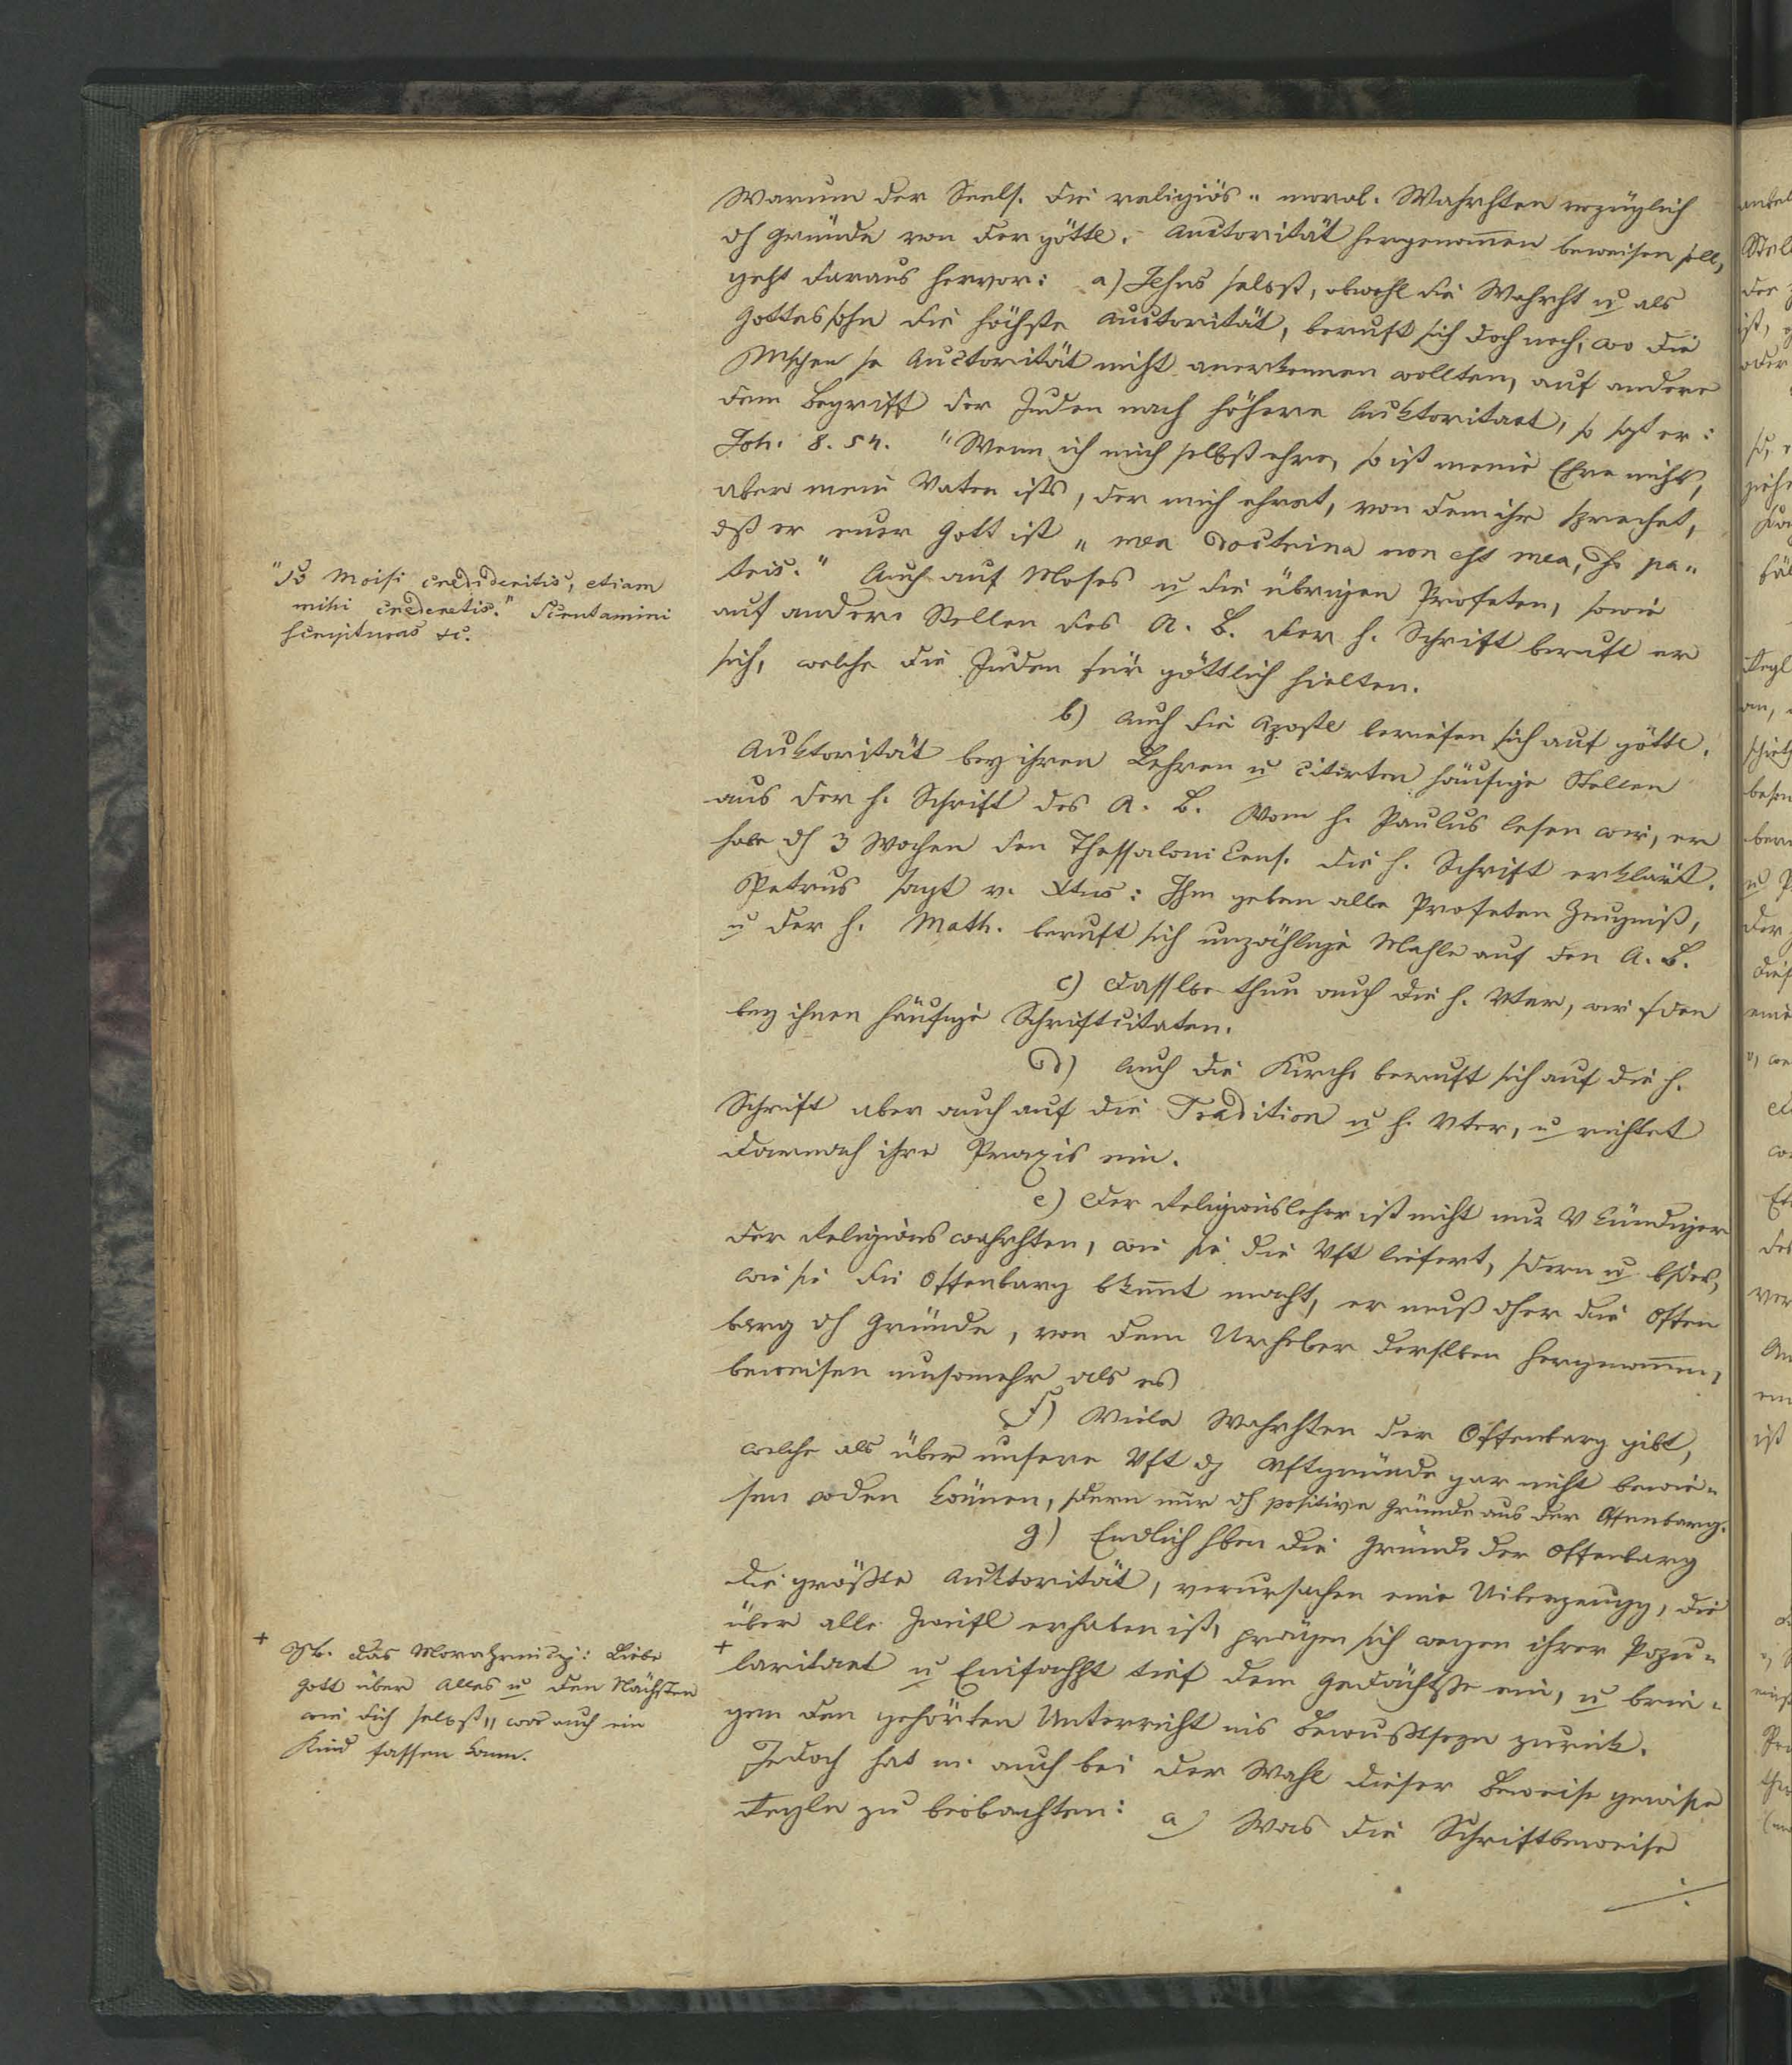 Warum der Seels. die religiös-moral. Wahrhten vorzüglich
dh Gründe von der göttl. Auctorität hergenom̅en beweisen soll,
geht daraus hervor: a) Jesus selbst, obwohl die Wahrht u als
Gottessohn die höchste Auctorität, beruft sich doch noch, wo die
Mschen se Auctorität nicht anerkennen wollten, auf andere
dem Begriff der Juden nach höhere Auktoritaet, so sagt er:
Joh. 8. 54. "Wenn ich mich selbst ehre, so ist meine Ehre nichts,
aber mein Vater ists, der mich ehret, von dem ihr sprechet,
dß er euer Gott ist „ mea doctrina non est mea, sed pa-
tris." Auch auf Moses u die übrigen Profeten, sowie
auf andere Stellen des A. B. der h. Schrift beruft er
sich, welche die Juden für göttlich hielten.
"Si Moisi credideritis, etiam
mihi crederetis." Scrutamini
scripturas &c.
b) Auch die Apostel beriefen sich auf göttl.
Auktorität bey ihren Lehren u citirten häufige Stellen
aus der h. Schrift des A. B. Vom h. Paulus lesen wir, er
habe dh 3 Wochen den Thessalonicens. die h. Schrift erklärt.
Petrus sagt v. Xtus: Ihm geben alle Profeten Zeugniß,
u der h. Math. beruft sich unzählige Mahle auf den A. B.
c) Dasslbe thun auch die h. Vter, wir fden
bey ihnen häufige Schriftcitaten.
d) Auch die Kirche beruft sich auf die h.
Schrift aber auch auf die Tradition u h. Vter, u richtet
darnach ihre Praxis ein.
e) Der Religionslehrer ist nicht nur Vkündiger
der Religionswahrhten, wie sie die Vft liefert, sdern u bsdes,
wie sie die Offenbarg bkannt macht, er muß dher die Offen
barg dh Gründe, von dem Urheber derslben hergenom̅en,
beweisen umsomehr als es
f) Viele Wahrhten der Offenbarg gibt,
welche als über unsere Vft dh Vftgründe gar nicht bewie-
sen wden können, sdern nur dh positive Gründe aus der Offenbarg.
g) Endlich hben die Gründe der Offenbarg
die größte Auktorität, verursachen eine Uiberzeugg, die
über alle Zweifl erhaben ist, prägen sich wegen ihrer Popu-
+
laritaet u Einfachht tief dem Gedächtße ein, u brin-
gen den gehörten Unterricht ins Bewußtseyn zurück.
+ das Moralprincip: Liebe
Gott über Alles u den Nächsten
wie dich selbst„ was auch ein
Kind fassen kann.
Jedoch hat m. auch bei der Wahl dieser Beweise gewiße
Regln zu beobachten: a) Was die Schriftbeweise